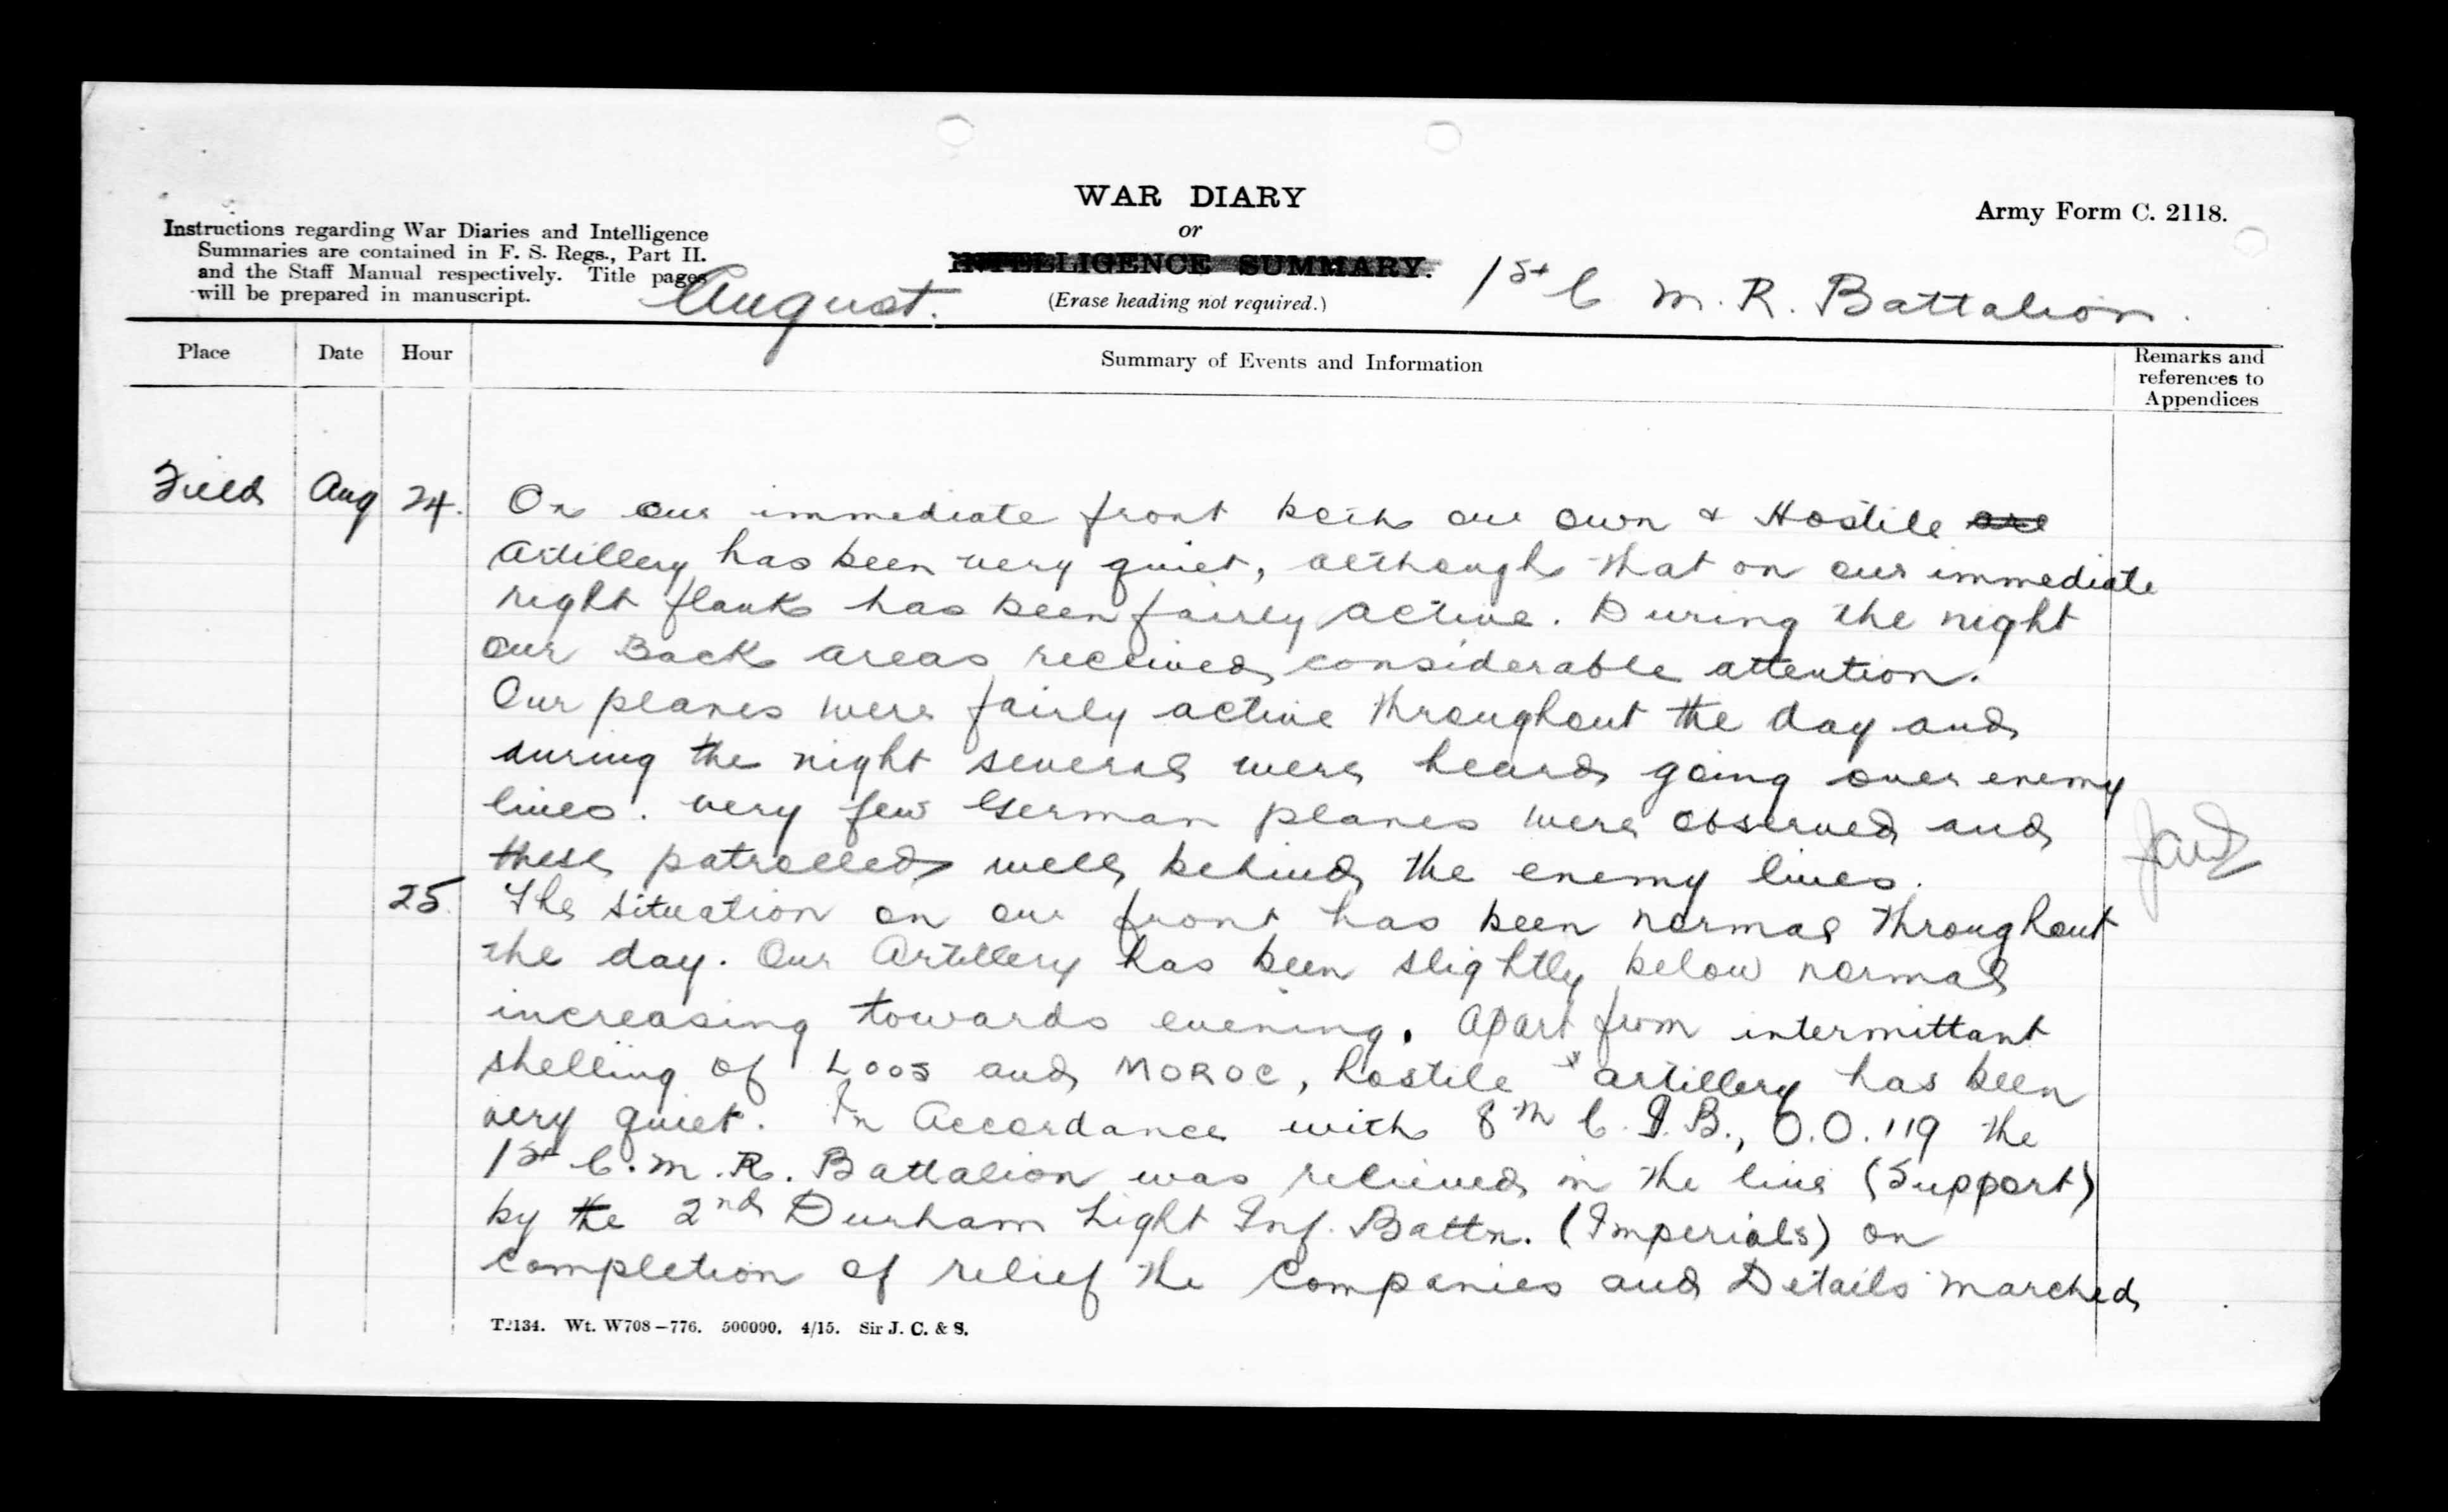 WAR DIARY
or
INTELLIGENCE SUMMARY.
(Erase heading not required.)
Army Form C. 2118.
Instructions regarding War Diaries and Intelligence
Summaries are contained in F. S. Regs., Part II.
and the Staff Manual respectively. Title pages
will be prepared in manuscript.
August.
1st C M. R. Battalion.
Place
Date
Hour
Summary of Events and Information
Remarks and
references to
Appendices
Field Aug 24. On our immediate front both our own & Hostile are
artillery has been very quiet, although that on our immediate
right flank has been fairly active. During the night
our Back areas received considerable attention.
Our planes were fairly active throughout the day and
during the night several were heard going over enemy
lines. very few German planes were observed and
these patrolled well behind the enemy lines.
25. The situation on our front has been normal throughout
the day. Our Artillery has been slightly below normal
increasing towards evening. Apart from intermittant
shelling of LOOS and MOROC, hostile artillery has been
very quiet. In Accordance with 8th C.I.B., O.O.119 the
1st C.M.R. Battalion was relieved in the line (Support)
by the 2nd Durham Light Inf. Battn. (Imperials) on
completion of relief the Companies and Details marched
T2134. Wt. W708-776. 500000. 4/15. Sir J. C. & S.